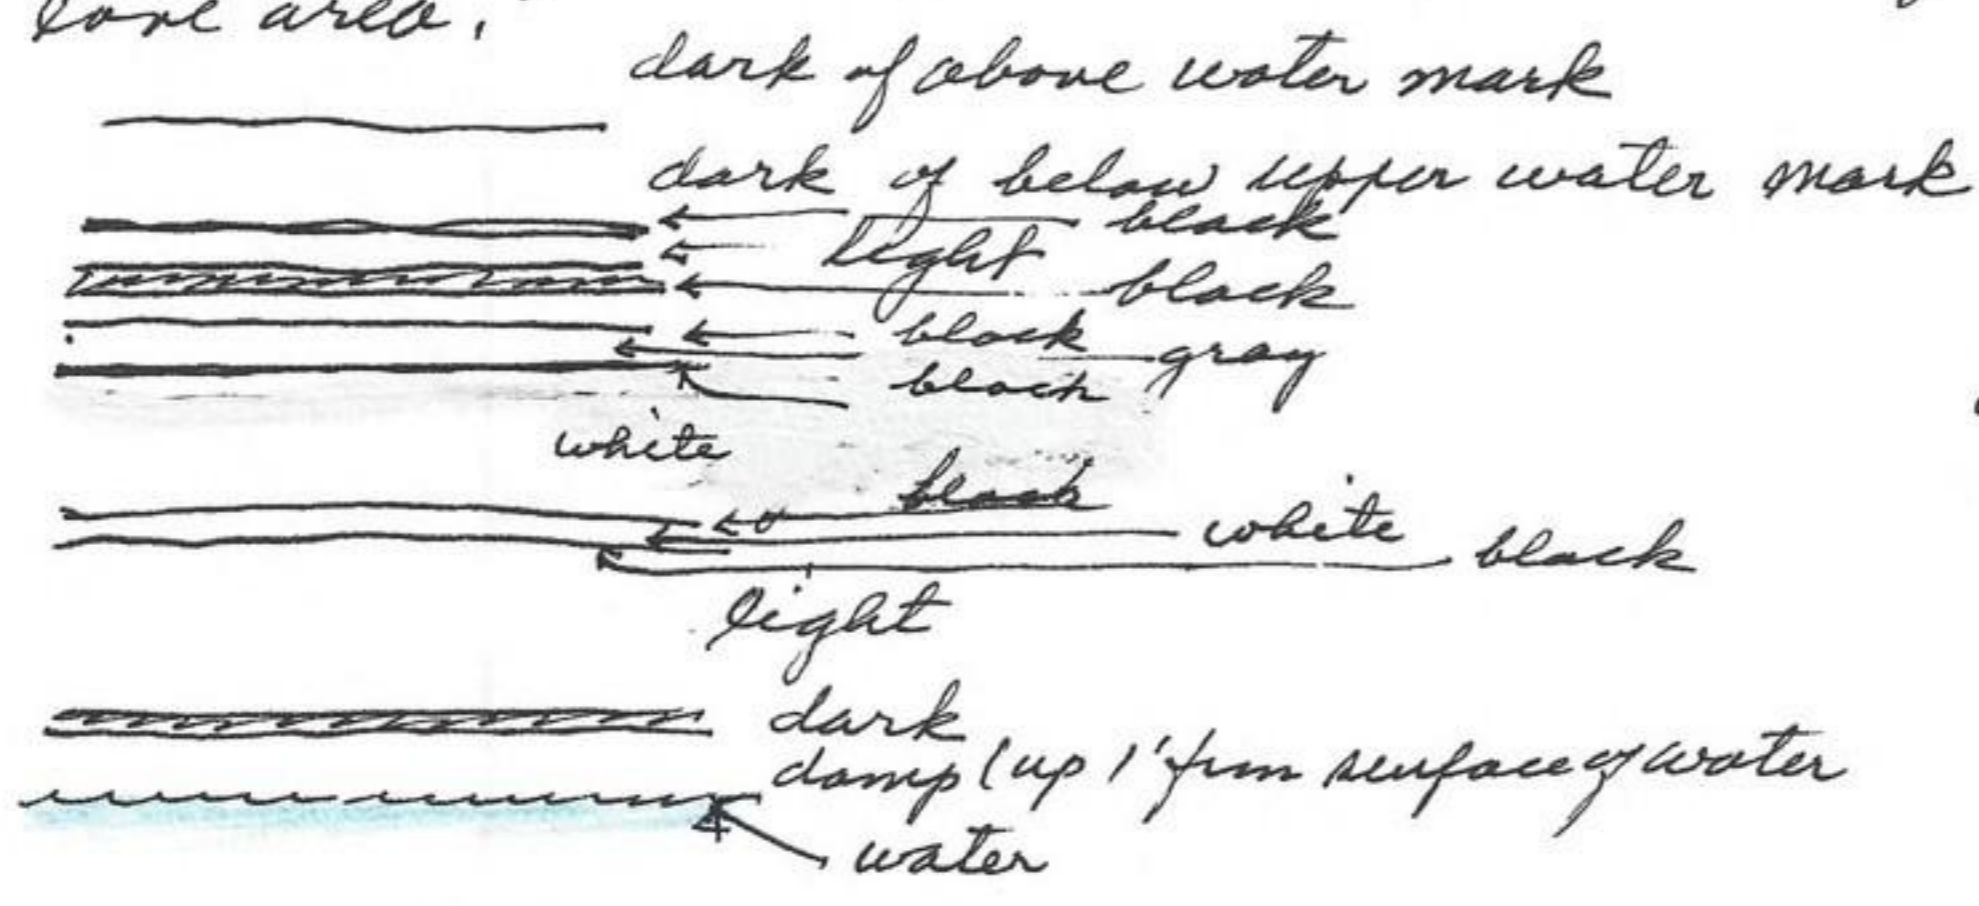 area.
dark of above water mark
dark of below upper water mark
black
light
black
black
gray
black
white
black
white
black
light
dark
damp (up 1' from surface of water
water